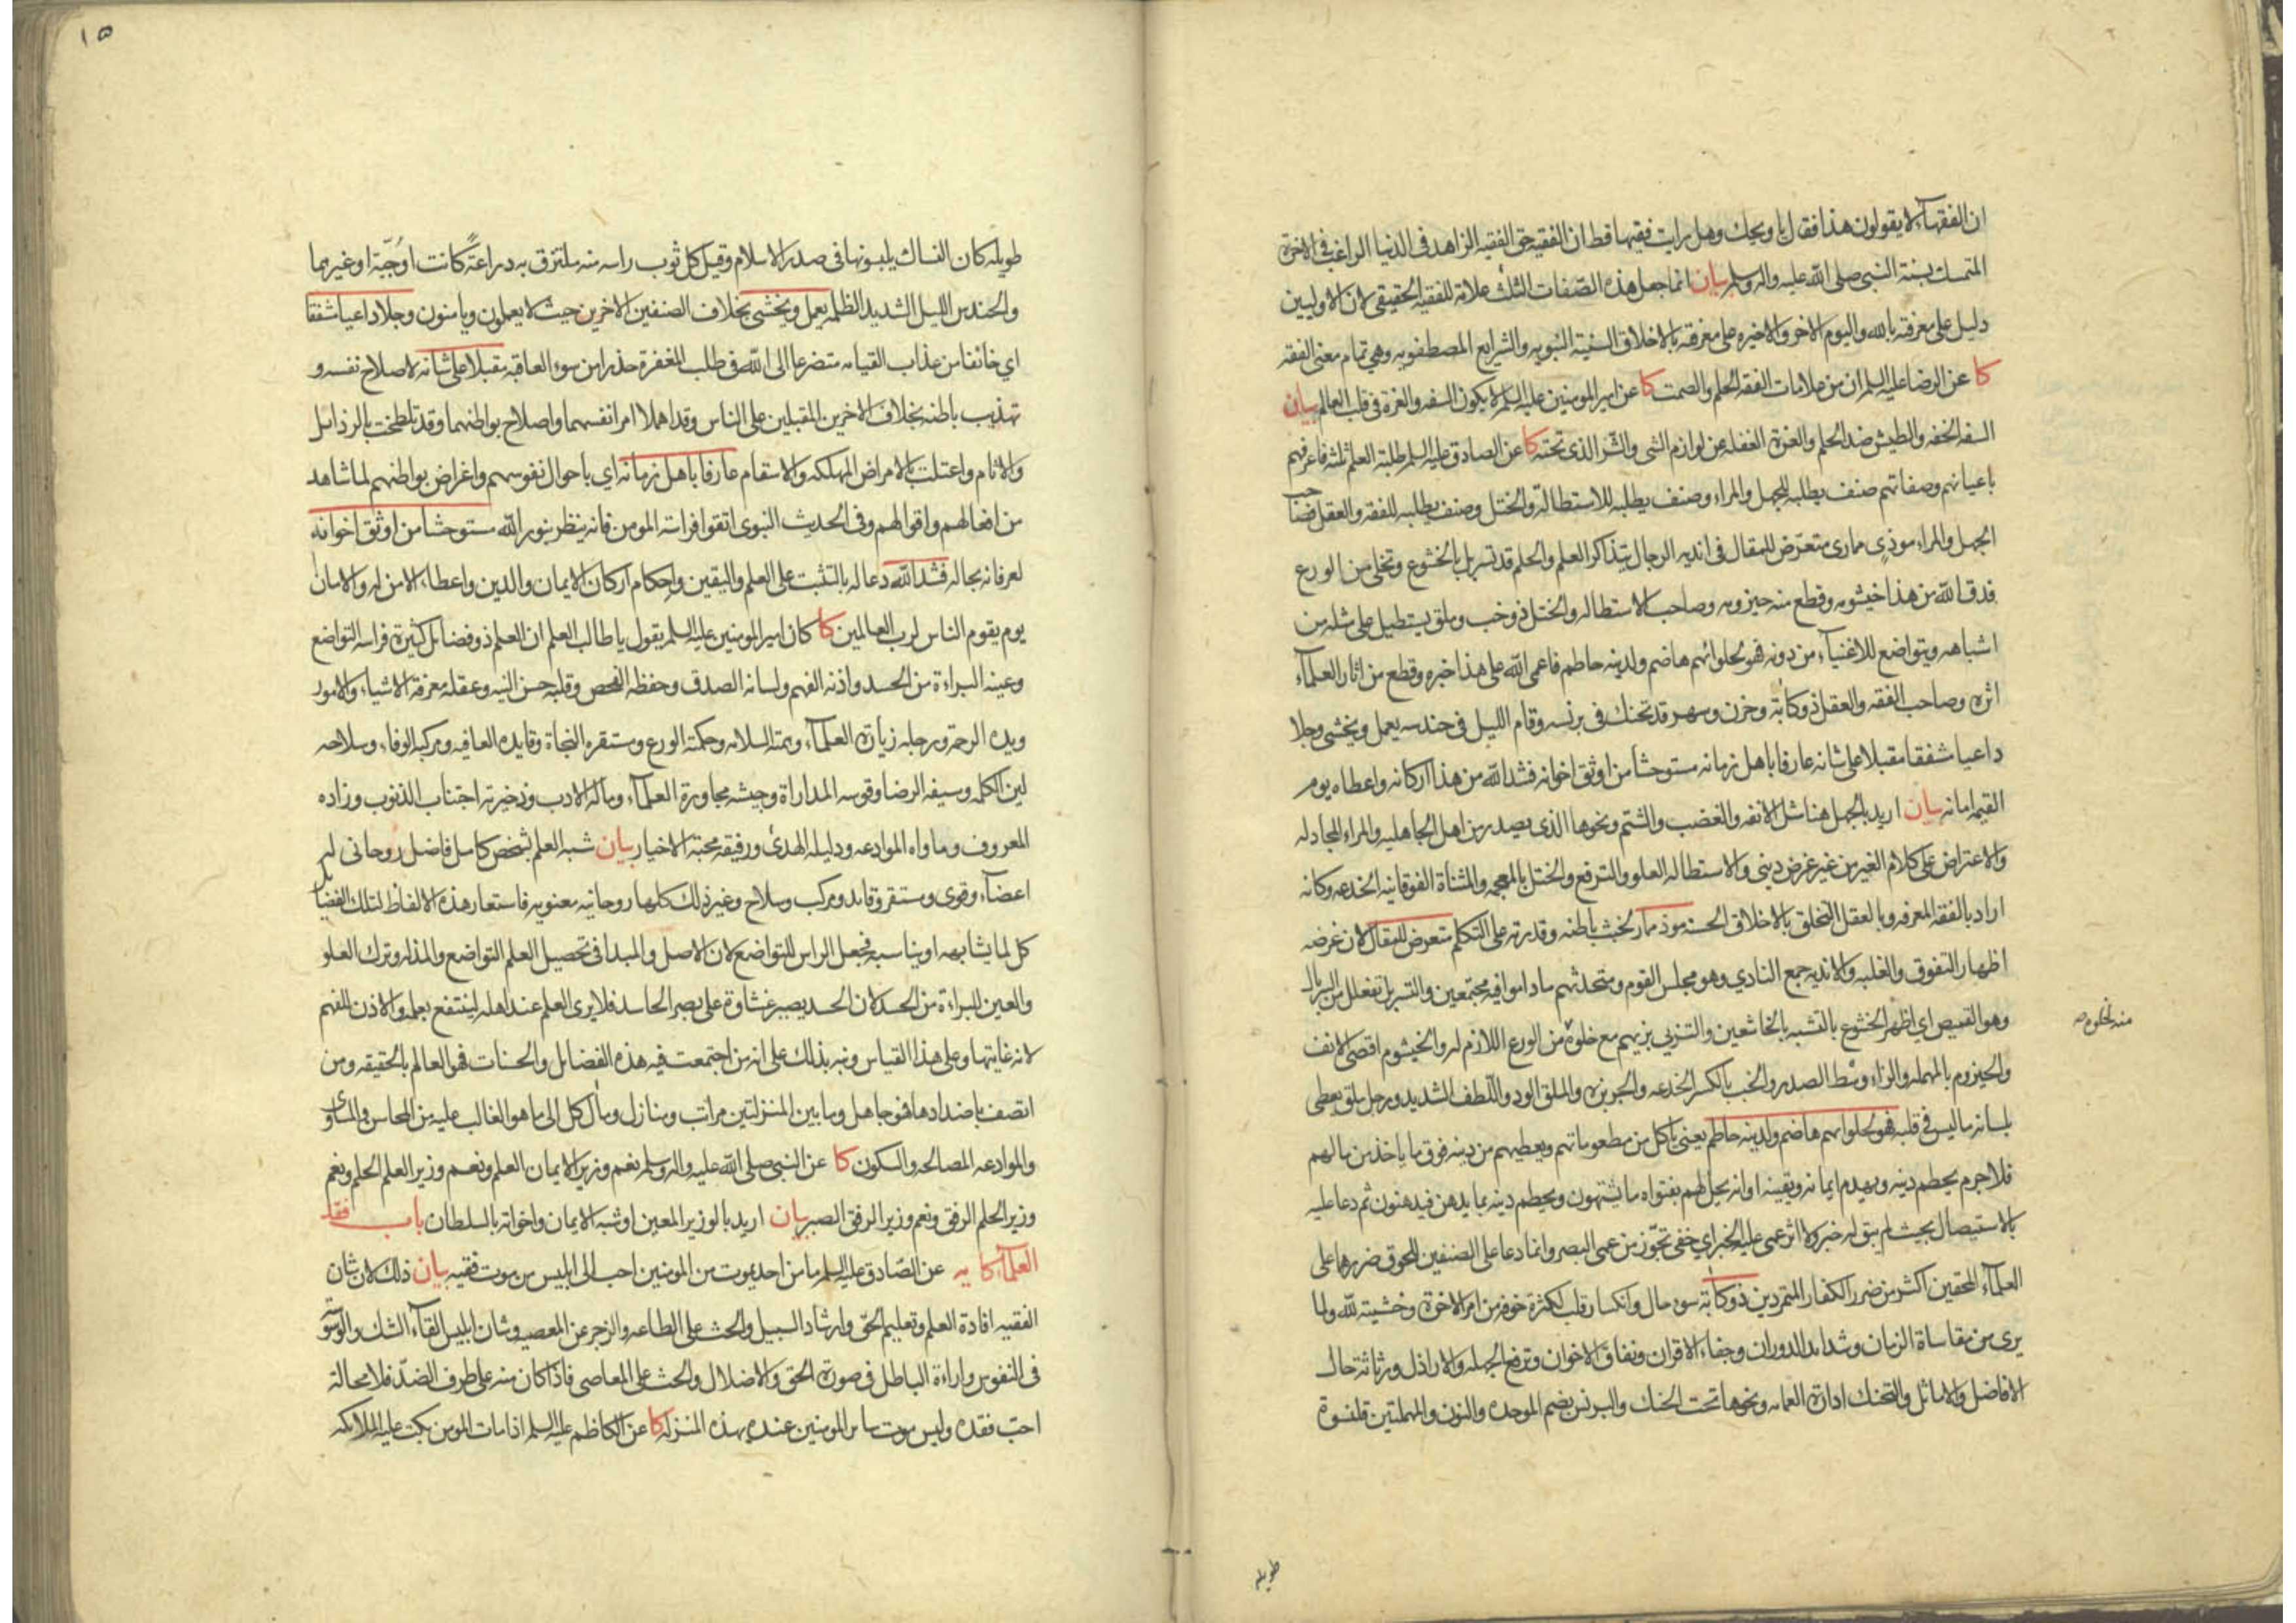 ان الفقهآء لا يقولون هذا فقال يا ويحك وهل رايت فقيها قط ان الفقيه حق الفقيه الزاهد فى الدنيا الراغب فى الاخرة
المتمسك بسنة النبى صلى الله عليه واله وسلم بيان انما جعل هذه الصفات الثلث علامة للفقيه الحقيقى لان الاوليين
دليل على معرفته بالله واليوم الاخر والاخيره على معرفته بالاخلاق السنية النبويه والشرايع المصطفويه وهى تمام معنى الفقه
كا عن الرضا عليه السلم ان من علامات الفقه الحلم والصمت كا عن امير المومنين عليه السلم لا يكون السفه والغرة فى قلب العالم بيان
السفه الخفه والطيش ضد الحلم والغرة الغفله عن لوازم الشى والشر الذى تحته كا عن الصادق عليه السلم طلبة العلم ثلثه فاعرفهم
باعيانهم وصفاتهم صنف يطلبه للجهل والمراء وصنف يطلبه للاستطالة والختل وصنف يطلبه للفقه والعقل فصاحب
الجهل والمراء موذى مارى متعرض للمقال فى انديه الرجال بتذاكر العلم والحلم قد تسربل بالخشوع وتخلى من الورع
فدق الله من هذا خيشومه وقطع منه حيزومه وصاحب الاستطاله والختل ذو خب وملق يستطيل على مثله من
اشباهه ويتواضع للاغنيآء من دونه فهو لحلوائهم هاضم ولدينه حاطم فاعمى الله على هذا خبره وقطع من اثار العلمآء
اثره وصاحب الفقه والعقل ذو كابة وحزن وسهر قد تحنك فى برنسه وقام الليل فى حندسه يعمل ويخشى وجلا
داعيا مشفقا مقبلا على شانه عارفا باهل زمانه مستوحشا من اوثق اخوانه فشد الله من هذا اركانه واعطاه يوم
القيمه امانه بيان اريد بالجهل هنا مثل الانفه والغضب والشتم ونحوها الذى يصدر من اهل الجاهليه والمراء المجادله
والاعتراض على كلام الغير من غير غرض دينى والاستطاله العلو والترفع والختل بالمعجمه والمثناة الفوقانيه الخدعه وكانه
اراد بالفقه المعرفه وبالعقل التخلق بالاخلاق الحسنه موذ ممار لخبث باطنه وقدرته على التكلم متعرض للمقال لان غرضه
اظهار التفوق والغلبه والانديه جمع النادي وهو مجلس القوم ومتحدثهم ماداموا فيه مجتمعين والتسربل تفعلل من السربال
وهو القميص اي اظهر الخشوع بالتشبه بالخاشعين والتزيي بزيهم مع خلوه من الورع اللازم له والخيشوم اقصى الانف
منه لخلوه صح
والحيزوم بالمهمله والزاء وسط الصدر والخب بالكسر الخدعه والجربزه والملق الود واللطف الشديد ورجل ملق يعطى
بلسانه ما ليس فى قلبه فهو لحلوايهم هاضم ولدينه حاطم يعنى ياكل من مطعوماتهم ويعطيهم من دينه فوق ما ياخذ من مالهم
فلا جرم يحطم دينه ويهدم ايمانه ويقينه او انه يحل لهم بفتواه ما يشتهون ويحطم دينه بما يدهن فيدهنون ثم دعا عليه
بالاستيصال بحيث لم يبق له خبر ولا اثر عمى عليه الخبر اي خفى تجوز من عمى البصر وانما دعا على الصنفين للحوق ضررها على
العلمآء المحقين اكثر من ضرر الكفار المتمردين ذو كابة سوء حال وانكسار قلب لكثرة خوفه من امر الاخرة وخشيته لله ولما
يرى من مقاساة الزمان وشدايد الدوران وجفاء الاقران ونفاق الاخوان وترفع الجهله والاراذل ورثاثة حال
الافاضل والاماثل والتحنك ادارة العمامه ونحوها تحت الحنك والبرنس بضم الموحده والنون والمهملتين قلنسوة
طويله
١٥
طويله كان النساك يلبسونها فى صدر الاسلام وقيل كل ثوب راسه منه ملتزق به دراعة كانت او جبة او غيرهما
والحندس الليل الشديد الظلمه يعمل ويخشى بخلاف الصنفين الاخرين حيث لا يعملون ويامنون وجلا داعيا مشفقا
اي خائفا من عذاب القيامه متضرعا الى الله فى طلب المغفرة حذرا من سوء العاقبه مقبلا على شانه لاصلاح نفسه و
تهذيب باطنه بخلاف الاخرين المقبلين على الناس وقد اهملا امر انفسهما واصلاح بواطنهما وقد تلطخت بالرذائل
والاثام واعتلت بالامراض المهلكه والاسقام عارفا باهل زمانه اي باحوال نفوسهم واغراض بواطنهم لما شاهد
من افعالهم واقوالهم وفى الحديث النبوى اتقوا فراسة المومن فانه ينظر بنور الله مستوحشا من اوثق اخوانه
لعرفانه بحاله فشد الله دعا له بالتثبت على العلم واليقين واحكام اركان الايمان والدين واعطاء الامن له والامان
يوم يقوم الناس لرب العالمين كا كان امير المومنين عليه السلم يقول يا طالب العلم ان العلم ذو فضائل كثيرة فراسه التواضع
وعينه البراءة من الحسد واذنه الفهم ولسانه الصدق وحفظه الفحص وقلبه حسن النيه وعقله معرفة الاشياء والامور
ويده الرحمة ورجله زيارة العلمآء وهمته السلامه وحكمته الورع ومستقره النجاة وقايده العافيه ومركبه الوفاء وسلاحه
لين الكلمه وسيفه الرضا وقوسه المداراة وجيشه مجاورة العلمآء وماله الادب وذخيرته اجتناب الذنوب وزاده
المعروف وماواه الموادعه ودليله الهدى ورفيقه محبة الاخيار بيان شبه العلم بشخص كامل فاضل روحانى له
اعضآء وقوى ومستقر وقايد ومركب وسلاح وغير ذلك كلها روحانيه معنويه فاستعار هذه الالفاظ لتلك الفضايل
كل لما يشابهه او يناسبه فجعل الراس للتواضع لان الاصل والمبدا فى تحصيل العلم التواضع والمذله وترك العلو
والعين للبراءة من الحسد لان الحسد يصير غشاوة على بصر الحاسد فلا يرى العلم عند اهله لينتفع بعلمه والاذن للفهم
لانه غايتها وعلى هذا القياس ونبه بذلك على انه من اجتمعت فيه هذه الفضائل والحسنات فهو العالم بالحقيقه ومن
اتصف باضدادها فهو جاهل وما بين المنزلتين مراتب ومنازل ومآل كل الى ما هو الغالب عليه من المحاسن والمساوى
والموادعه المصالحه والسكون كا عن النبى صلى الله عليه واله وسلم نعم وزير الايمان العلم ونعم وزير العلم الحلم ونعم
وزير الحلم الرفق ونعم وزير الرفق الصبر بيان اريد بالوزير المعين او شبه الايمان واخواته بالسلطان باب فقد
العلمآء كا يه عن الصادق عليه السلم ما من احد يموت من المومنين احب الى ابليس من موت فقيه بيان ذلك لان شان
الفقيه افادة العلم وتعليم الحق وارشاد السبيل والحث على الطاعه والزجر عن المعصيه وشان ابليس القآء الشك والوسوسة
فى النفوس واراءة الباطل فى صورة الحق والاضلال والحث على المعاصى فاذا كان منه على طرف الضد فلا محالة
احب فقده وليس موت ساير المومنين عنده بهذه المنزله كا عن الكاظم عليه السلم اذا مات المومن بكت عليه الملائكه